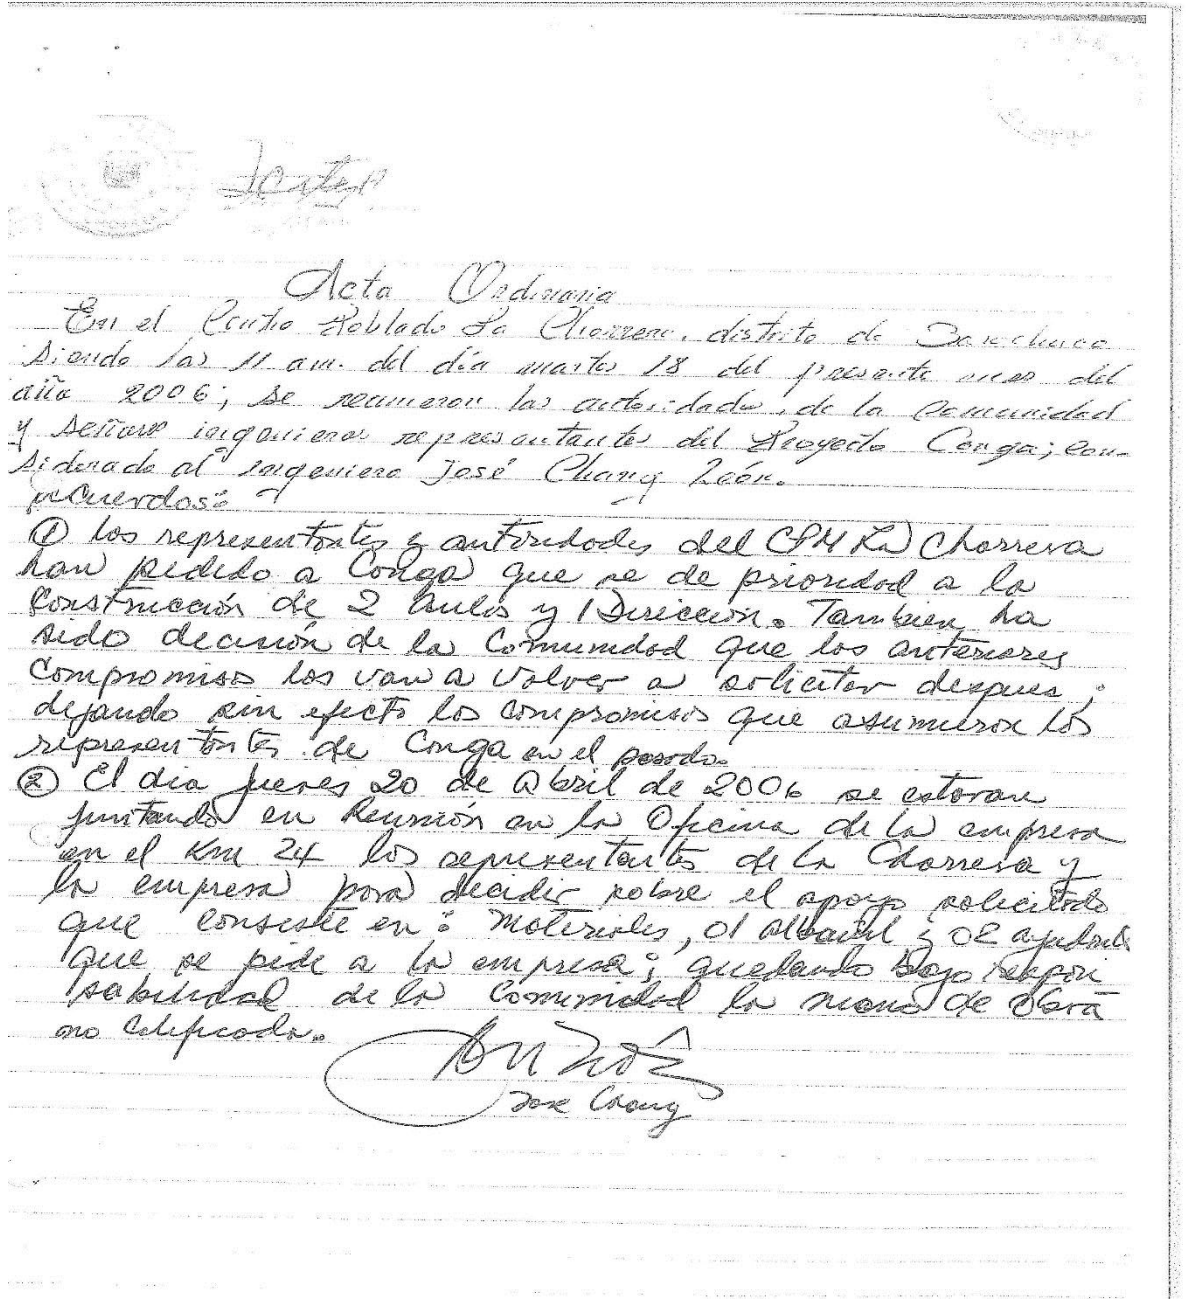 Acta Ordinaria
En el Centro Poblado La Chorrera, distrito de Sorochuco
siendo las 11 am. del día martes 18 del presente mes del
año 2006; se reunieron las autoridades de la Comunidad
y señores ingenieros representantes del Proyecto Conga; con-
siderado al ingeniero José Chang León.
acuerdos:
① Los representantes y autoridades del CPM La Chorrera
han pedido a Conga que se de prioridad a la
Construcción de 2 aulas y 1 Dirección. Tambien ha
sido decisión de la Comunidad que los anteriores
Compromisos los van a volver a solicitar despues;
dejando sin efecto los compromisos que asumieron los
representantes de Conga en el pasado.
② El dia jueves 20 de Abril de 2006 se estaran
juntando en Reunión en la Oficina de la empresa
en el Km 24 los representantes de la Chorrera y
la empresa para decidir sobre el apoyo solicitado
que consiste en: Materiales, 01 albañil y 02 ayudantes
que se pide a la empresa; quedando bajo respon
sabilidad de la Comunidad la mano de Obra
no calificada.
Jose Chang